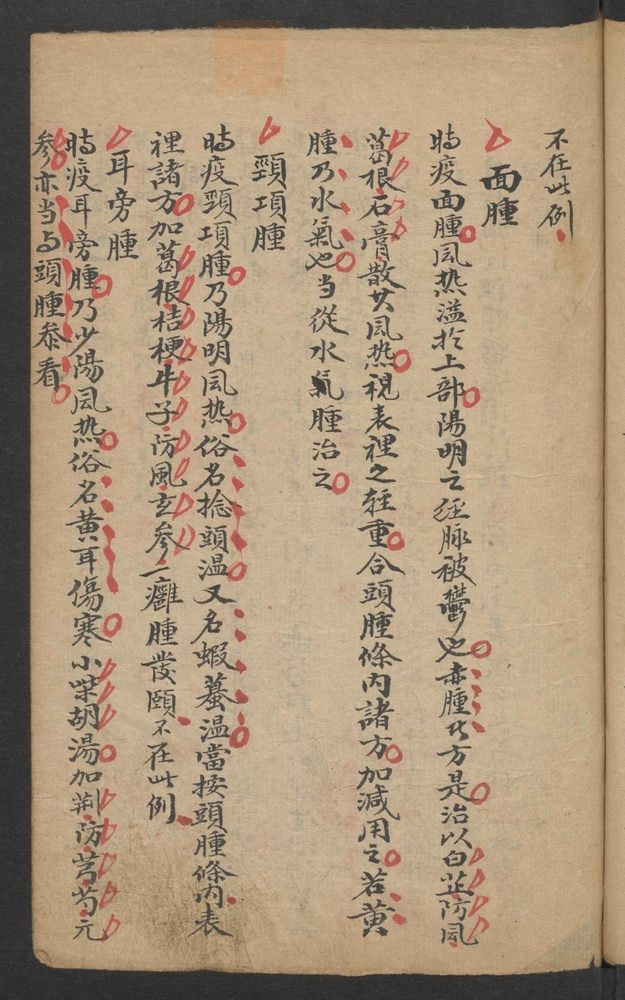 不在此例
面腫
時疫面腫風热溢於上部陽明之経脉被鬱也赤腫此方是治以白芷防風
葛根石膏散其風热視表裡之軽重合頭腫條内諸方加減用之若黄
腫乃水氣也当従水氣腫治之
頸項腫
時疫頸項腫乃陽明風热俗名捻頭温又名蝦蟇温當按頭腫條内表
裡諸方加葛根桔梗牛子防風玄参一癰腫發頤不在此例
耳旁腫
時疫耳旁腫乃少陽風热俗名黄耳傷寒小柴胡湯加荆防芎芍元
参亦当与頭腫参看